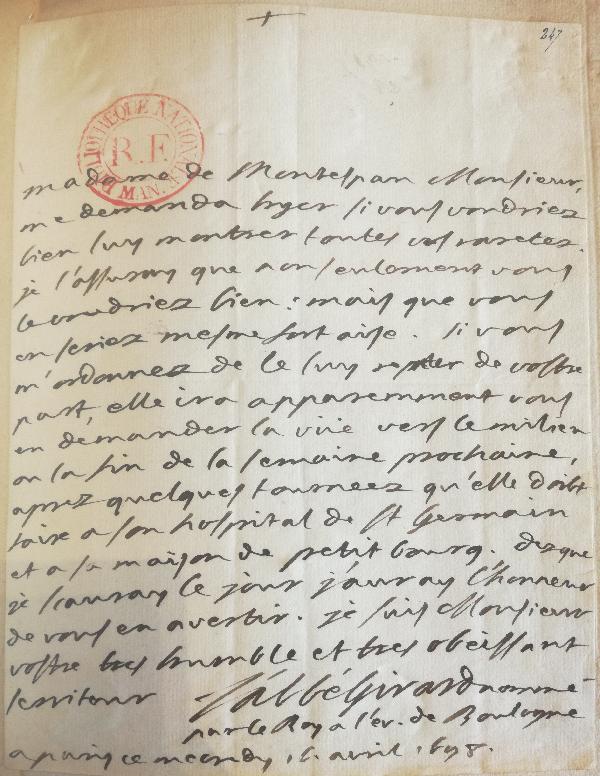 247
BIBLIOTHEQUE NATIONALE
R.F.
MAN.
madame de Montespan Monsieur,
me demanda hyer si vous voudriez
bien luy montrer toutes vos raretez.
je l'assuray que non seulement vous
le voudriez bien: mais que vous
en seriez mesme fort aise. si vous
m'ordonnez de le luy repeter de vostre
part, elle ira apparemment vous
en demander la vüe vers le milieu
ou la fin de la semaine prochaine,
aprez quelques tournees qu'elle doibt
faire a son hospital de St Germain
et a sa maison de petit bourg. des que
je scauray le jour j'auray l'honneur
de vous en avertir. je suis Monsieur
vostre tres humble et tres obeissant
serviteur L'abbé Girard nommé
par le Roy a l'ev. de Boulogne
a paris ce mecredy, avril 1698.